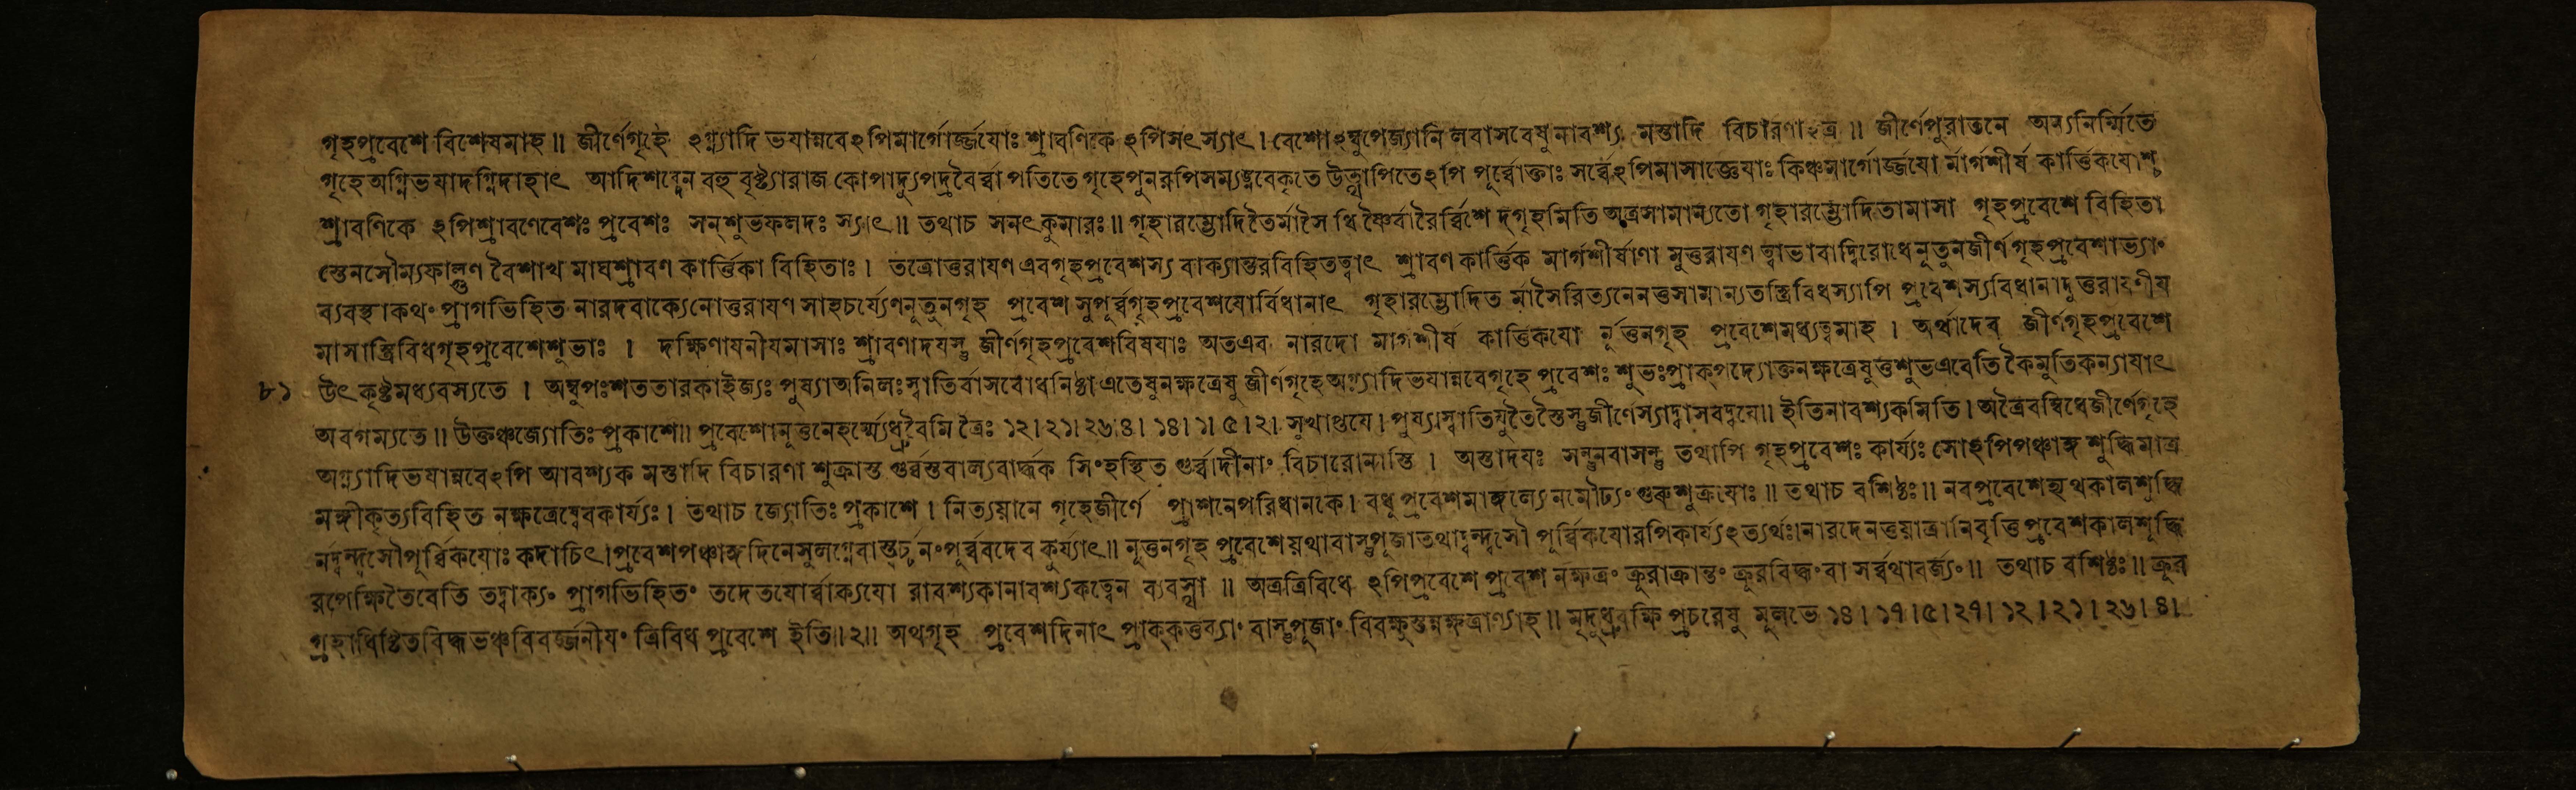 গৃহপ্রবেশে বিশেষমাহ॥ জীর্ণেগৃহে ঽগ্ন্যাদি ভযান্নবেঽপিমার্গোর্জ্জযোঃ শ্রাবণিকে ঽপিসৎস্যাৎ। বেশোঽম্বুপেজ্যানি লবাসবেষুনাবশ্য মস্তাদি বিচারণাঽত্র॥ জীর্ণেপুরাতনে অন্যনির্ম্মিতে
গৃহে অগ্নিভযাদগ্নিদাহাৎ আদিশব্দেন বহু বৃষ্ট্যারাজ কোপাদ্যুপদ্রবৈর্ব্বা পতিতে গৃহেপুনরপিসম্যঙ্নবেকৃতে উত্থাপিতেঽপি পূর্ব্বোক্তাঃ সর্ব্বেঽপিমাসাজ্ঞেযাঃ কিঞ্চমার্গোর্জ্জযো র্মার্গশীর্ষ কার্ত্তিকযোশ্চ
শ্রাবণিকে ঽপিশ্রাবণেবেশঃ প্রবেশঃ সন্শুভফলদঃ স্যাৎ॥ তথাচ সনৎকুমারঃ॥ গৃহারম্ভোদিতৈর্মাসৈ র্ধিষ্ণৈর্বারৈর্ব্বিশে দ্গৃহমিতি অত্রসামান্যতো গৃহারম্ভোদিতামাসা গৃহপ্রবেশে বিহিতা
স্তেনসৌম্যফাল্গুণ বৈশাখ মাঘশ্রাবণ কার্ত্তিকা বিহিতাঃ। তত্রোত্তরাযণ এবগৃহপ্রবেশস্য বাক্যান্তরবিহিতত্বাৎ শ্রাবণ কার্ত্তিক মার্গশীর্ষাণা মুত্তরাযণ ত্বাভাবাদ্বিরোধেনূতুনজীর্ণগৃহপ্রবেশাভ্যাং
ব্যবস্থাকথং প্রাগভিহিত নারদবাক্যেনোত্তরাযণ সাহচর্য্যেণনূতুনগৃহ প্রবেশ সুপূর্ব্বগৃহপ্রবেশযোর্বিধানাৎ গৃহারম্ভোদিত র্মাসৈরিত্যনেনতুসামান্যতস্ত্রিবিধস্যাপি প্রবেশস্যবিধানাদুত্তরাযণীয
মাসাস্ত্রিবিধগৃহপ্রবেশেশুভাঃ । দক্ষিণাযনীযমাসাঃ শ্রাবণাদযস্তু জীর্ণগৃহপ্রবেশবিষযাঃ অতএব নারদো মার্গশীর্ষ কার্ত্তিকযো র্নূত্তনগৃহ প্রবেশেমধ্যত্বমাহ । অর্থাদেব জীর্ণগৃহপ্রবেশে
৮১ উৎকৃষ্টমধ্যবস্যতে । অম্বুপঃশততারকাইজ্যঃ পুষ্যাঅনিলঃস্বাতির্বাসবোধনিষ্ঠা এতেষুনক্ষত্রেষু জীর্ণগৃহেঅগ্ন্যাদিভযান্নবেগৃহে প্রবেশঃ শুভঃপ্রাক্পদ্যোক্তনক্ষত্রেষুত্তশুভএবেতি কৈমুতিকন্যাযাৎ
অবগম্যতে॥ উক্তঞ্চজ্যোতিঃ প্রকাশে॥ প্রবেশোনূত্তনেহর্ম্ম্যেধ্রুবৈমি ত্রৈঃ ১২। ২১। ২৬।৪। ১৪। ১। ৫। ২। সুখাপ্তযে। পুষ্যাস্বাতিযুতৈস্তৈস্তুজীর্ণেস্যাদ্বাসবদ্বযে॥ ইতিনাবশ্যকমিতি। অত্রৈবম্বিধেজীর্ণেগৃহে
অগ্ন্যাদিভযান্নবেঽপি আবশ্যক মস্তাদি বিচারণা শুক্রাস্ত গুর্ব্বস্তবাল্যবার্দ্ধক সিংহস্থিত গুর্ব্বাদীনাং বিচারোনাস্তি । অস্তাদযঃ সন্তুনবাসন্তু তথাপি গৃহপ্রবেশঃ কার্য্যঃ সোঽপিপঞ্চাঙ্গ শুদ্ধিমাত্র
মঙ্গীকৃত্যবিহিত নক্ষত্রেষ্বেবকার্য্যঃ। তথাচ জ্যোতিঃ প্রকাশে । নিত্যযানে গৃহেজীর্ণে প্রাশনেপরিধানকে। বধু প্রবেশমাঙ্গল্যে নমৌঢ্যং গুরুশুক্রযোঃ॥ তথাচ বশিষ্ঠঃ॥ নবপ্রবেশেহ্যথকালশুদ্ধি
র্নদ্বন্দ্বসৌপূর্ব্বিকযোঃ কদাচিৎ।প্রবেশপঞ্চাঙ্গদিনেসুলগ্নেবাস্তুর্চ্চনংপূর্ব্ববদেব কুর্য্যাৎ॥ নূত্তনগৃহ প্রবেশেযথাবাস্তুপূজাতথাদ্বন্দ্বসৌ পূর্ব্বিকযোরপিকার্য্যঽত্যর্থঃ।নারদেনত্তযাত্রানিবৃত্তিপ্রবেশকালশুদ্ধি
রপেক্ষিতৈবেতি তদ্বাক্যং প্রাগভিহিতং তদেতযোর্ব্বাক্যযো রাবশ্যকানাবশ্যকত্বেন ব্যবস্থা॥ অত্রত্রিবিধে ঽপিপ্রবেশে প্রবেশ নক্ষত্রং ক্রূরাক্রান্তং ক্রূরবিদ্ধংবা সর্ব্বথাবর্জ্যং॥ তথাচ বশিষ্ঠঃ॥ ক্রূর
গ্রহাধিষ্ঠিতবিদ্ধভঞ্চবিবর্জ্জনীযং ত্রিবিধ প্রবেশে ইতি॥২॥ অথগৃহ প্রবেশদিনাৎ প্রাক্কর্ত্তব্যাং বাস্তুপূজাং বিবক্ষুস্তন্নক্ষত্রাণ্যাহ॥ মৃদুধ্রুবক্ষি প্রচরেষু মূলভে ১৪। ১৭। ৫। ২৭। ১২। ২১। ২৬। ৪।